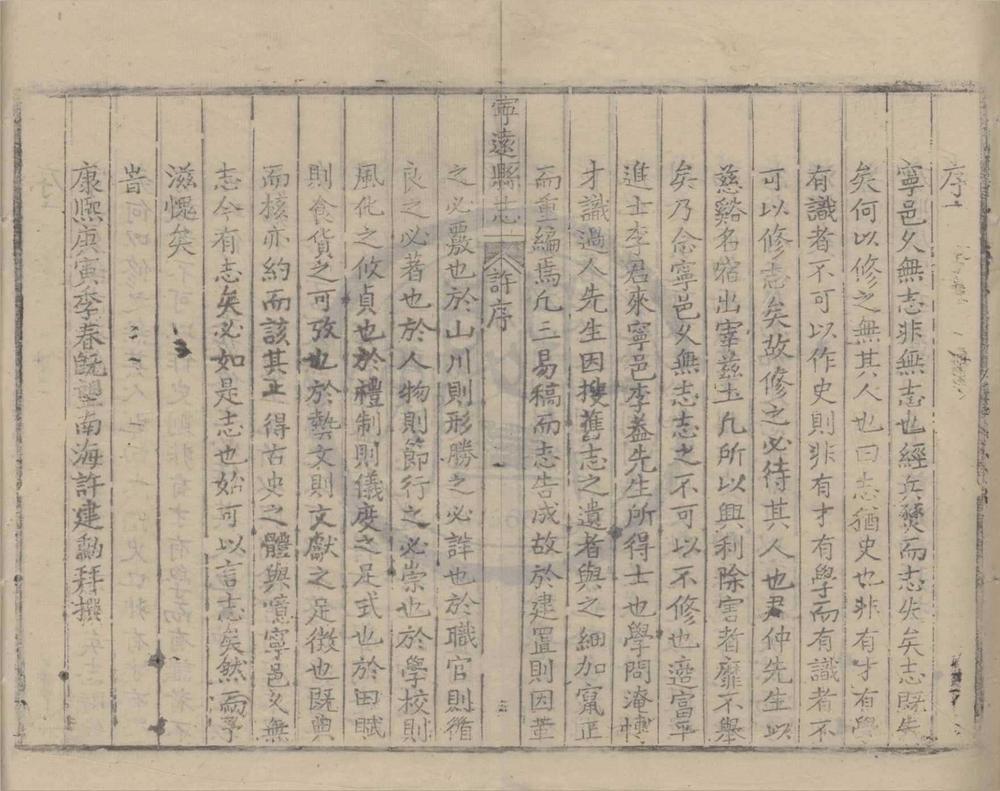 序
寧邑久無志非無志也經兵燹而志失矣志既失
矣何以修之無其人也曰志猶史也非有才有學
有識者不可以作史則非有才有學而有識者不
可以修志矣故修之必待其人也君仲先生以
慈谿名宿出宰茲土凡所以興利除害者靡不舉
矣乃念寧邑久無志志之不可以不修也適富平
進士李君來寧邑李葢先生所得士也學問淹博
才識過人先生因搜舊志之遺者與之細加竄正
而重編焉凡三易稿而志告成故於建置則因革
寧遠縣志
許序
三
之必覈也於山川則形勝之必詳也於職官則循
良之必著也於人物則節行之必崇也於學校則
風化之攸貞也於禮制則儀度之足式也於田賦
則食貨之可攷也於藝文則文獻之足徵也既典
而核亦約而該其正得古史之體與噫寧邑久無
志今有志矣必如是志也始可以言志矣然而予
滋愧矣
旹
康熙庚寅季春既望南海許建勳拜撰